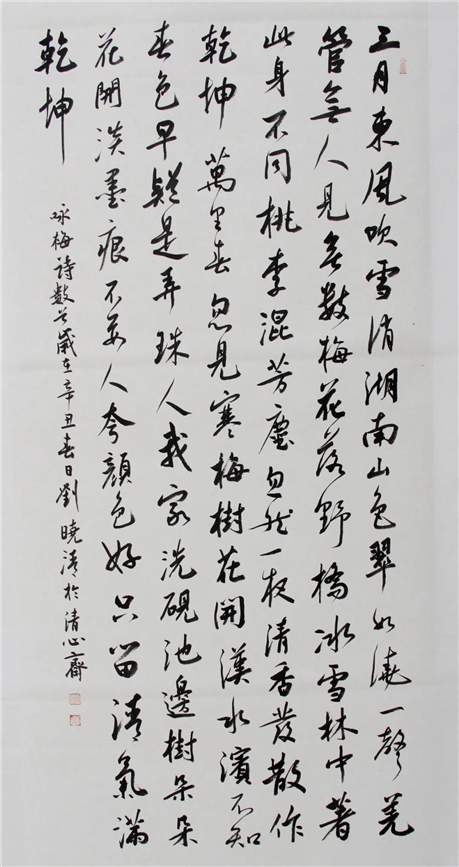 三月東風吹雪消湖南山色翠如澆一聲羌
管無人見無數梅花落野橋冰雪林中著
此身不同桃李混芳塵忽然一夜清香發散作
乾坤萬里春忽見寒梅樹花開漢水濱不知
春色早疑是弄珠人我家洗硯池邊樹朵朵
花開淡墨痕不要人夸顏色好只留清氣滿
乾坤
咏梅詩數首歲在辛丑春日劉曉清於清心齋